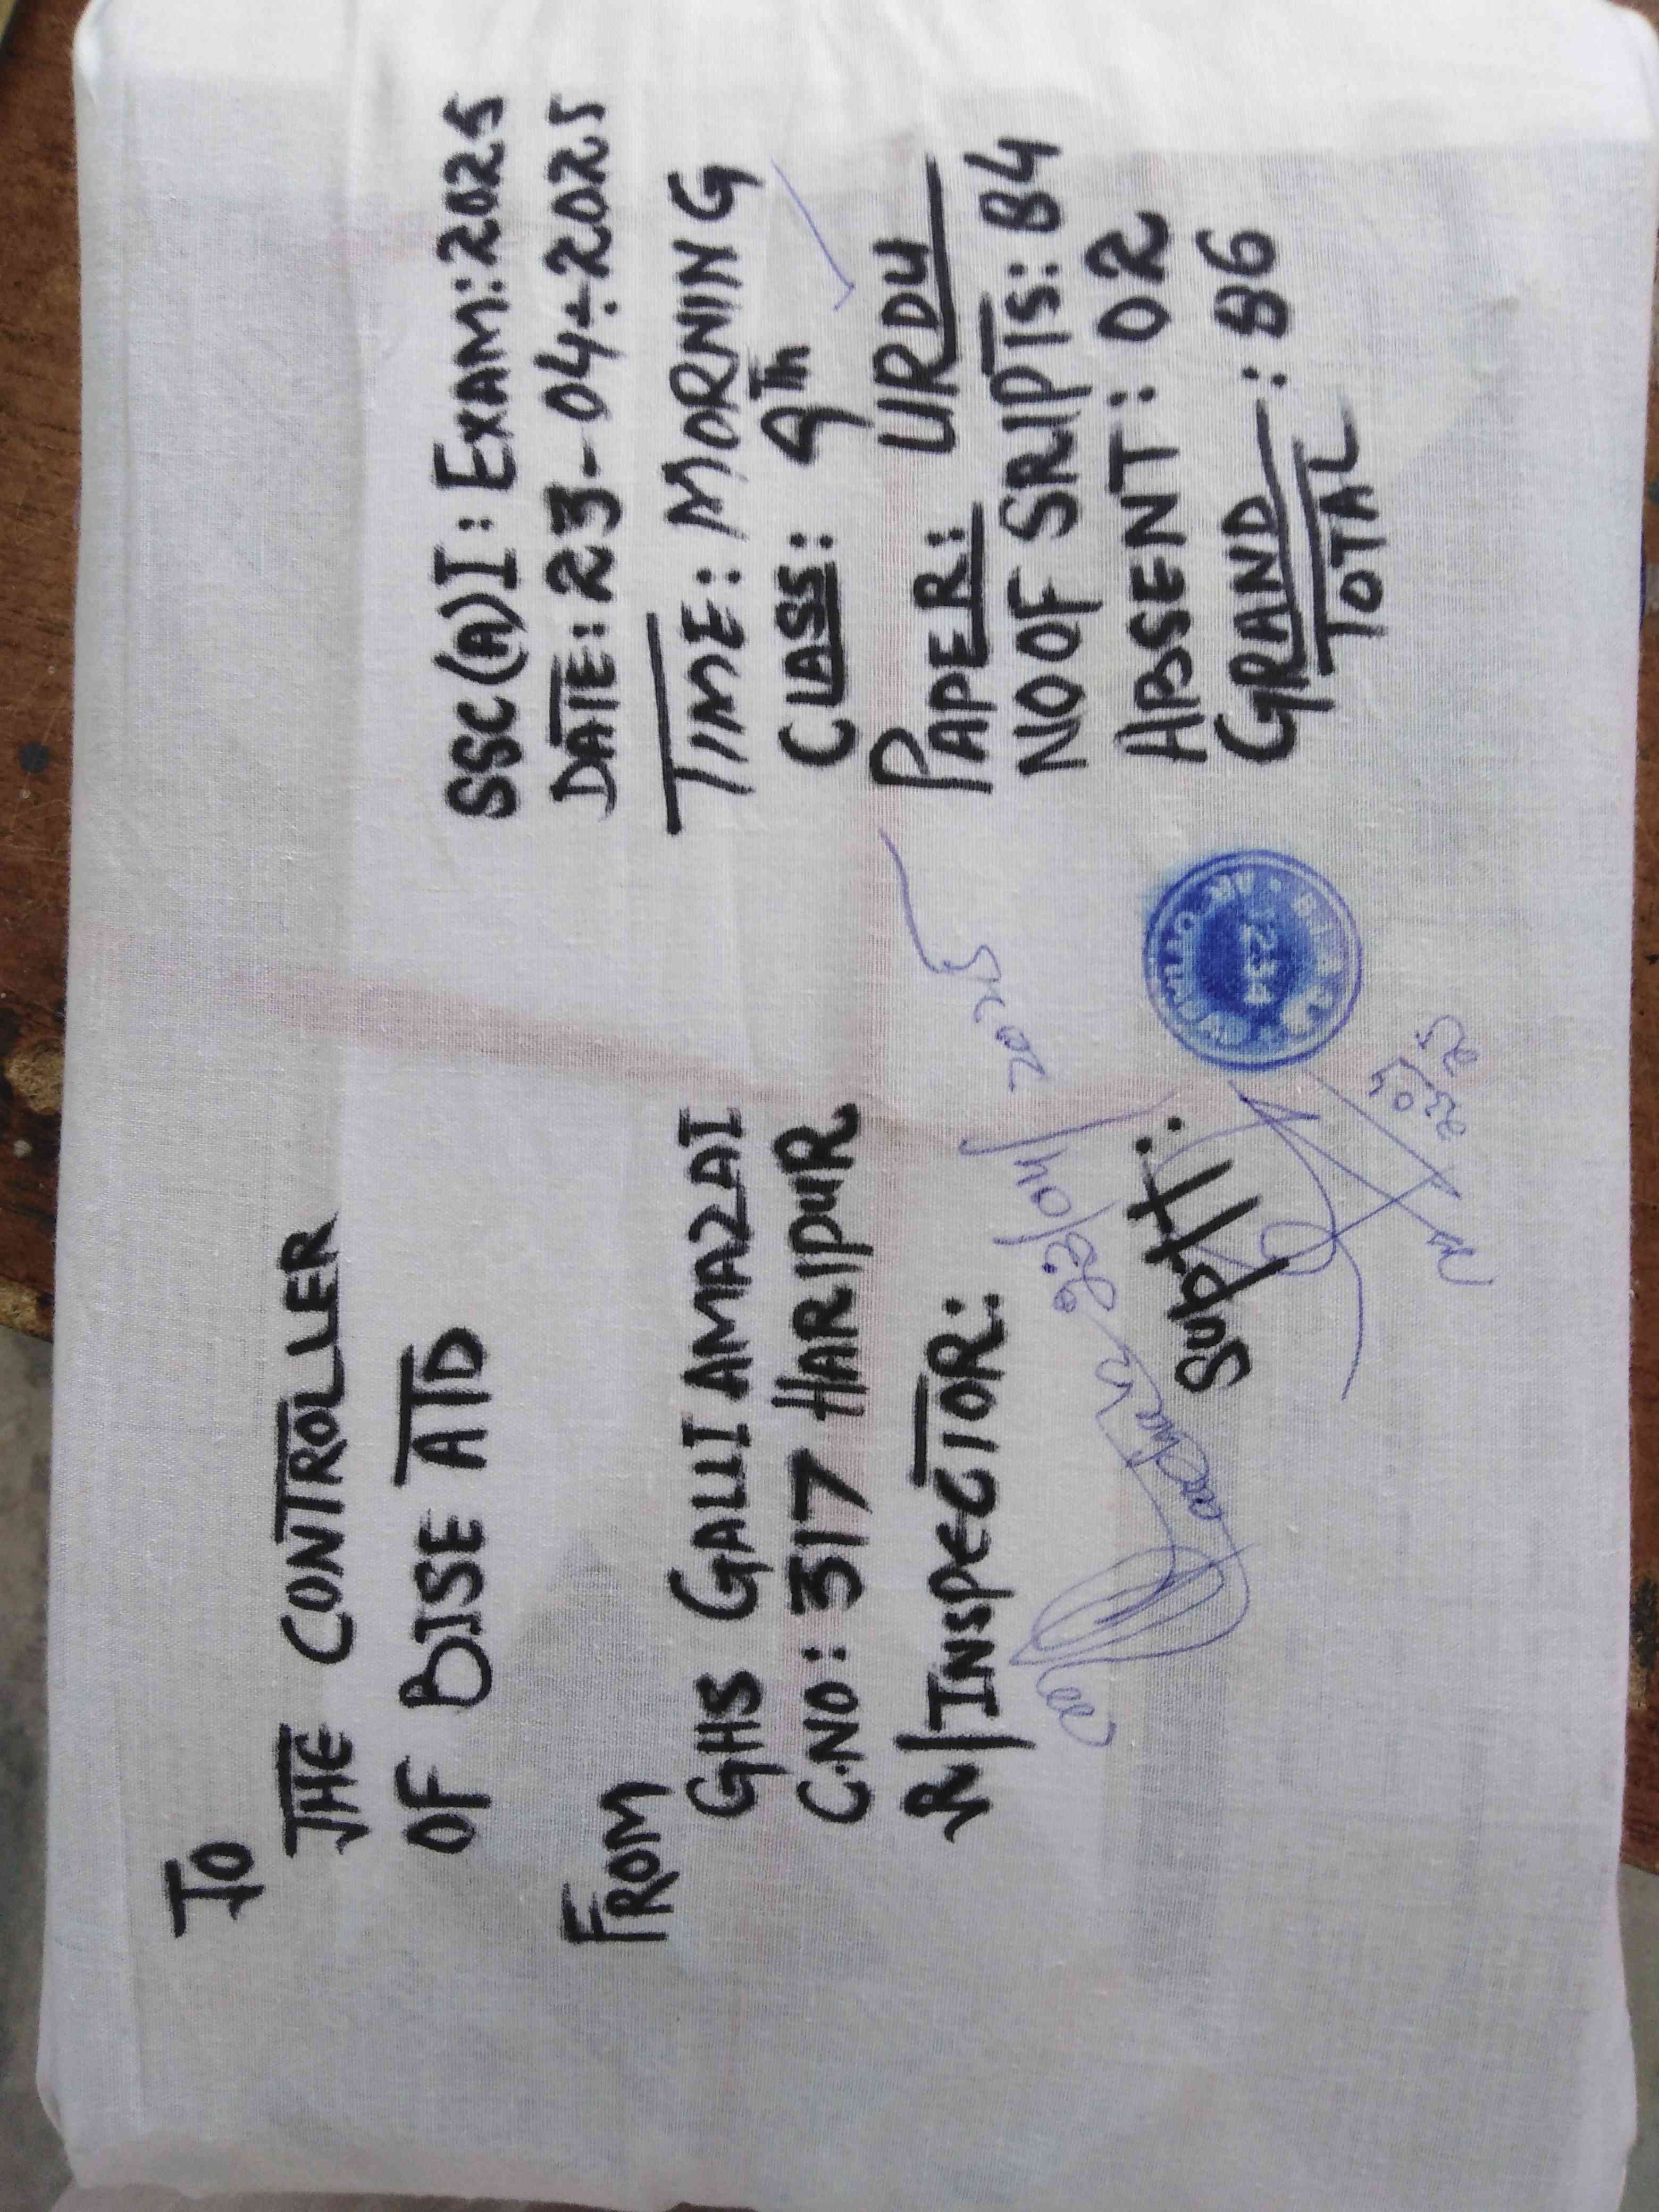 TO
THE CONTROLLER
OF BISE ATD
FROM
GHS GALLI AMAZAI
C.NO: 317 HARIPUR
R/INSPECTOR:
23/04/2025
SUPTT:
23/04/25
SSC(A)I: EXAM:2025
DATE: 23-04-2025
TIME: MORNING
CLASS: 9Th
PAPER: URDU
NO OF SRIPTS: 84
ABSENT: 02
GRAND : 86
TOTAL
2234